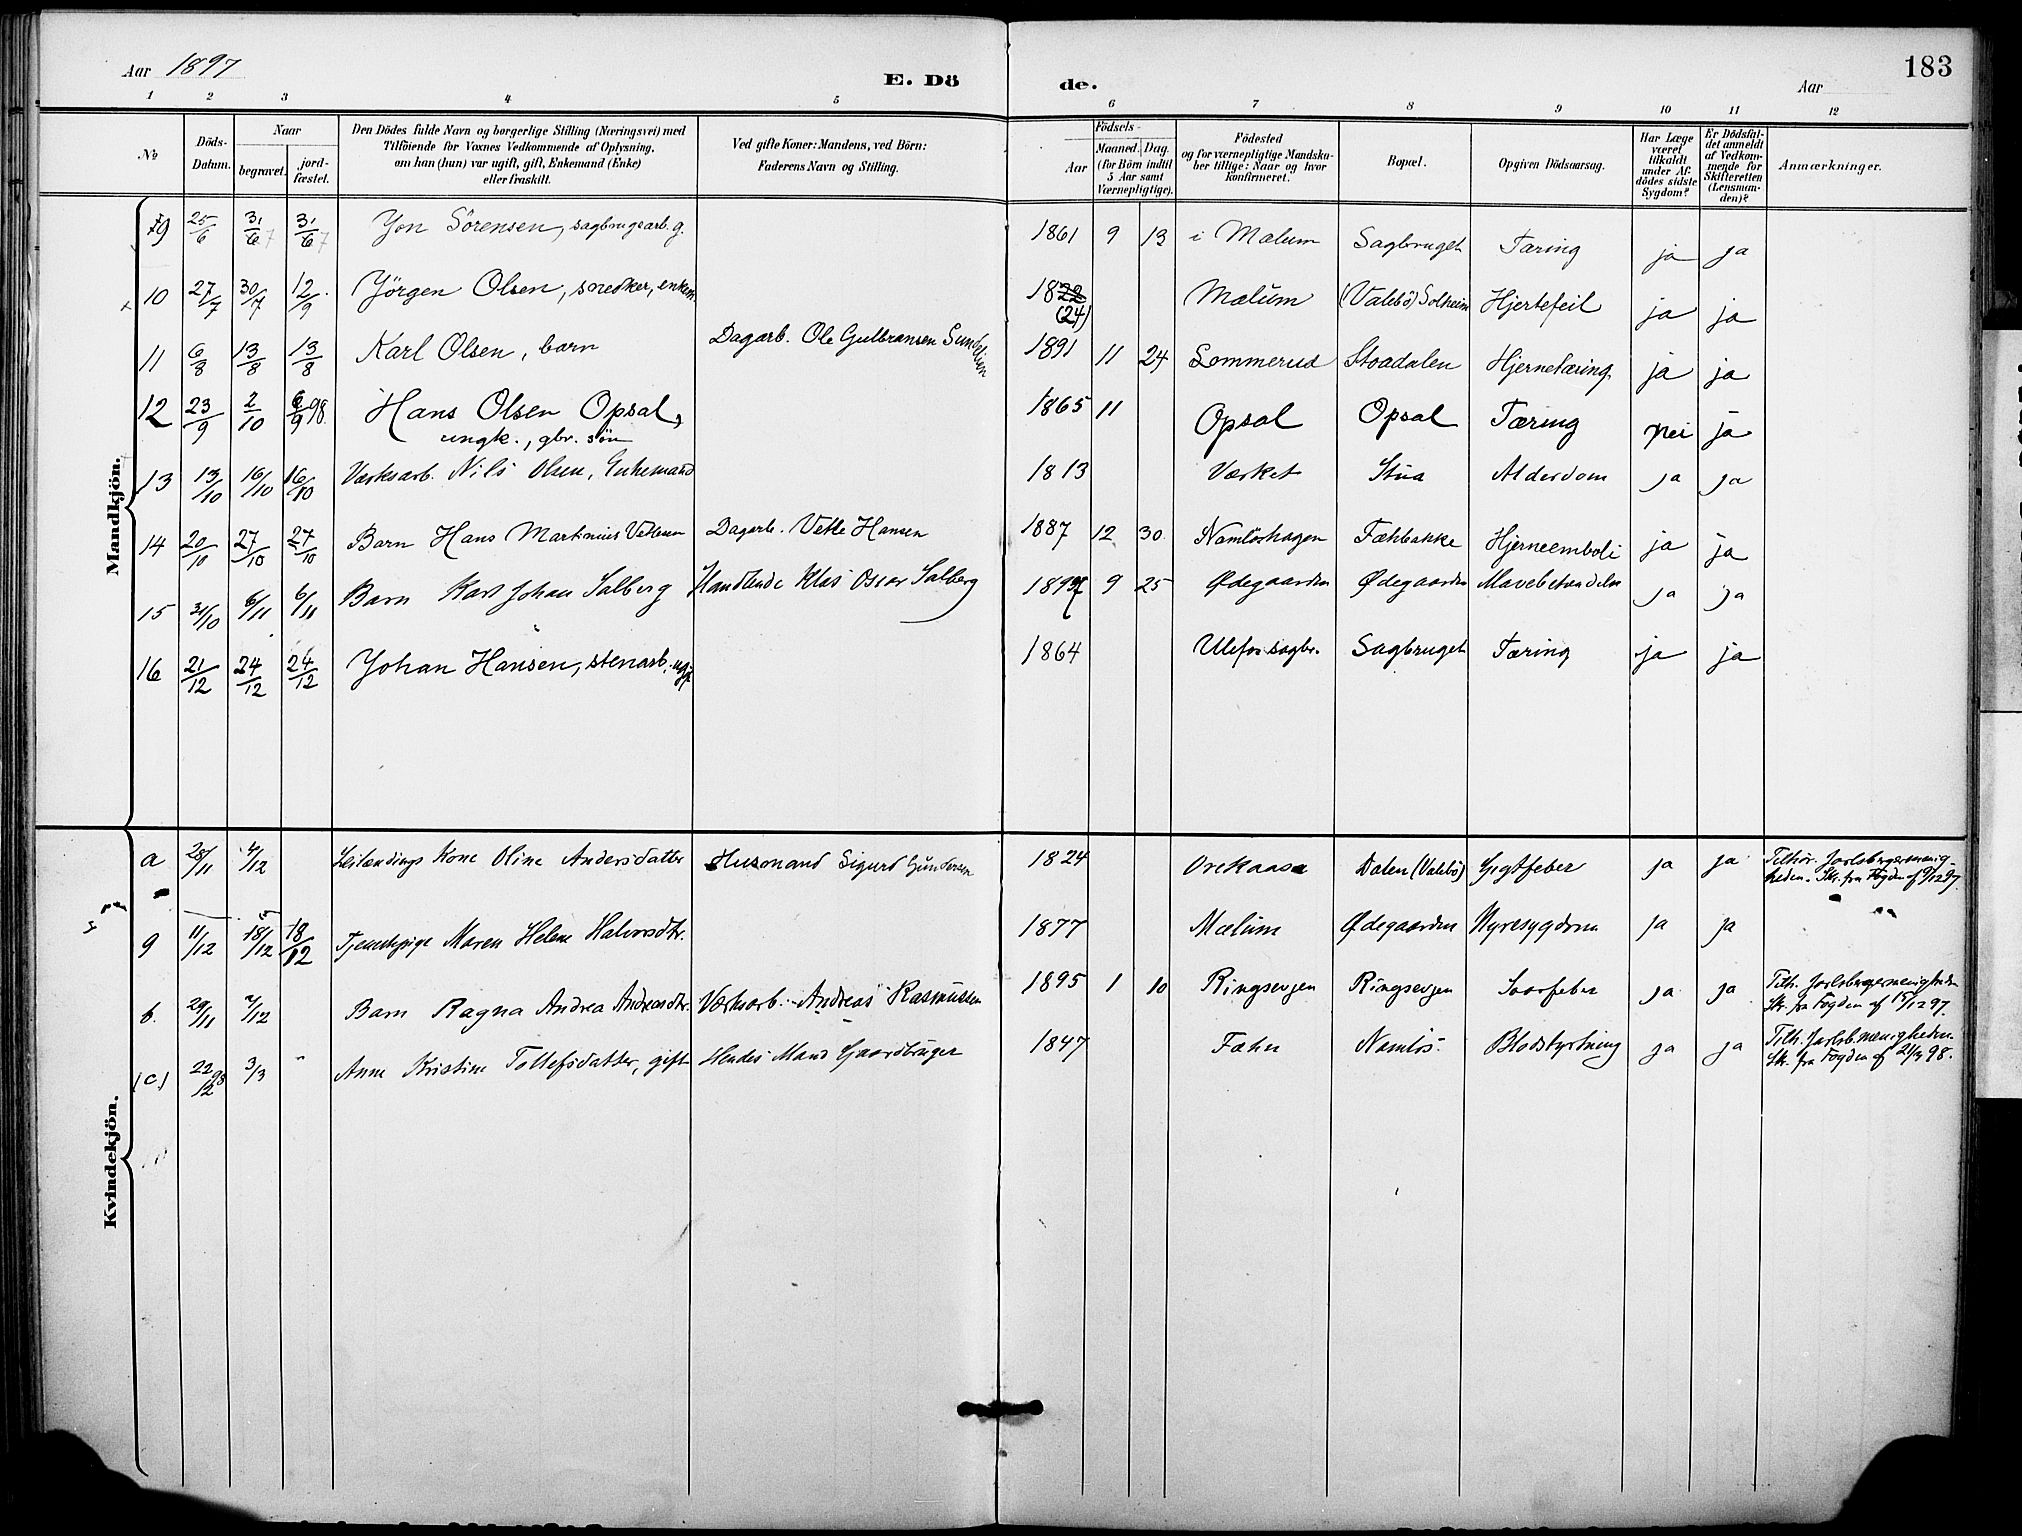 Aar 1897
E. Döde.
Aar
183
1 2 3 4 5 6 7 8 9 10 11 12
No
Döds-Datum.
Naar
begravet.
jordfæstet.
Den Dödes fulde Navn og borgerlige Stilling (Næringsvei) med
Tilföiende for Voxnes Vedkommende af Oplysning,
om han (hun) var ugift, gift, Enkemand (Enke)
eller fraskilt.
Ved gifte Koner: Mandens, ved Börn:
Faderens Navn og Stilling.
Födsels-
Aar
Maaned. Dag.
(for Börn indtil
5 Aar samt
Værnepligtige).
Födested
og for værnepligtige Mandska-
ber tillige: Naar og hvor
konfirmeret.
Bopæl.
Opgiven Dödsaarsag.
Har Læge
været
tilkaldt
under Af-
dödes sidste
Sygdom?
Er Dödsfal-
det anmeldt
af Vedkom-
mende for
Skifteretten
(Lensman-
den)?
Anmærkninger.
Mandkjön.
9 25/6 31/7 31/7 Jon Sörensen, sagbrugsarb. g. 1861 9 13 i Mælum Sagbruget Tæring ja ja
10 27/7 30/7 12/9 Jörgen Olsen, snedker, enkem. 1822 (24) Mælum (Valebö) Solheim Hjertefeil ja ja
11 6/8 13/8 13/8 Karl Olsen, barn Dagarb. Ole Gulbransen 1891 11 24 Sommerud Stoadalen Hjernetæring. ja ja
12 23/9 2/10 /9 98. Hans Olsen Opsal, 1865 11 Opsal Opsal Tæring nei ja
ungk., gbr. sön
13 13/10 16/10 16/10 Værksarb. Nils Olsen, Enkemand 1813 Værket Stua Alderdom ja ja
14 20/10 27/10 27/10 Barn Hans Martinius Vetlesen Dagarb. Vetle Hansen 1887 12 30. Namlöshagen Fæhbakke Hjerneemboli ja ja
15 31/10 6/11 6/11 Barn Karl Johan Salberg Handlende Klas Oscar Salberg 1897 9 25 Ødegaarden Ødegaarden ja ja
16 21/12 24/12 24/12 Johan Hansen, stenarb. ugift 1864 Ulefos sagbr. Sagbruget Tæring ja ja
Kvindekjön.
a 28/11 4/12 Leilændings Kone Oline Andersdatter Husmand Sigurd Gundersen 1824 Orekaasa Dalen (Valebö) Gigtfeber ja ja Tilhör. Jarlsbergermenig-
heden. Skr. fra Fogden af 9/12 97.
9 11/12 18/12 18/12 Tjenestepige Maren Helene Halvorsdtr. 1877 Mælum Ødegaarden Nyresygdom ja ja
b. 29/11 7/12 Barn Ragna Andrea Andreasdtr. Værksarb. Andreas Rasmussen 1895 1 10 Ringsevjen Ringsevjen ja ja Tilh. Jarlsbergermenigheden
Skr. fra Fogden af 15/12 97.
(c) 22/12 98 3/3 " Anne Kristine Tollefsdatter, gift Hendes Mand Gaardbruger 1847 Fæhn Namlös. Blodstyrtning ja ja Tilh. Jarlsb.menigheden
Skr. fra Fogden af 98.